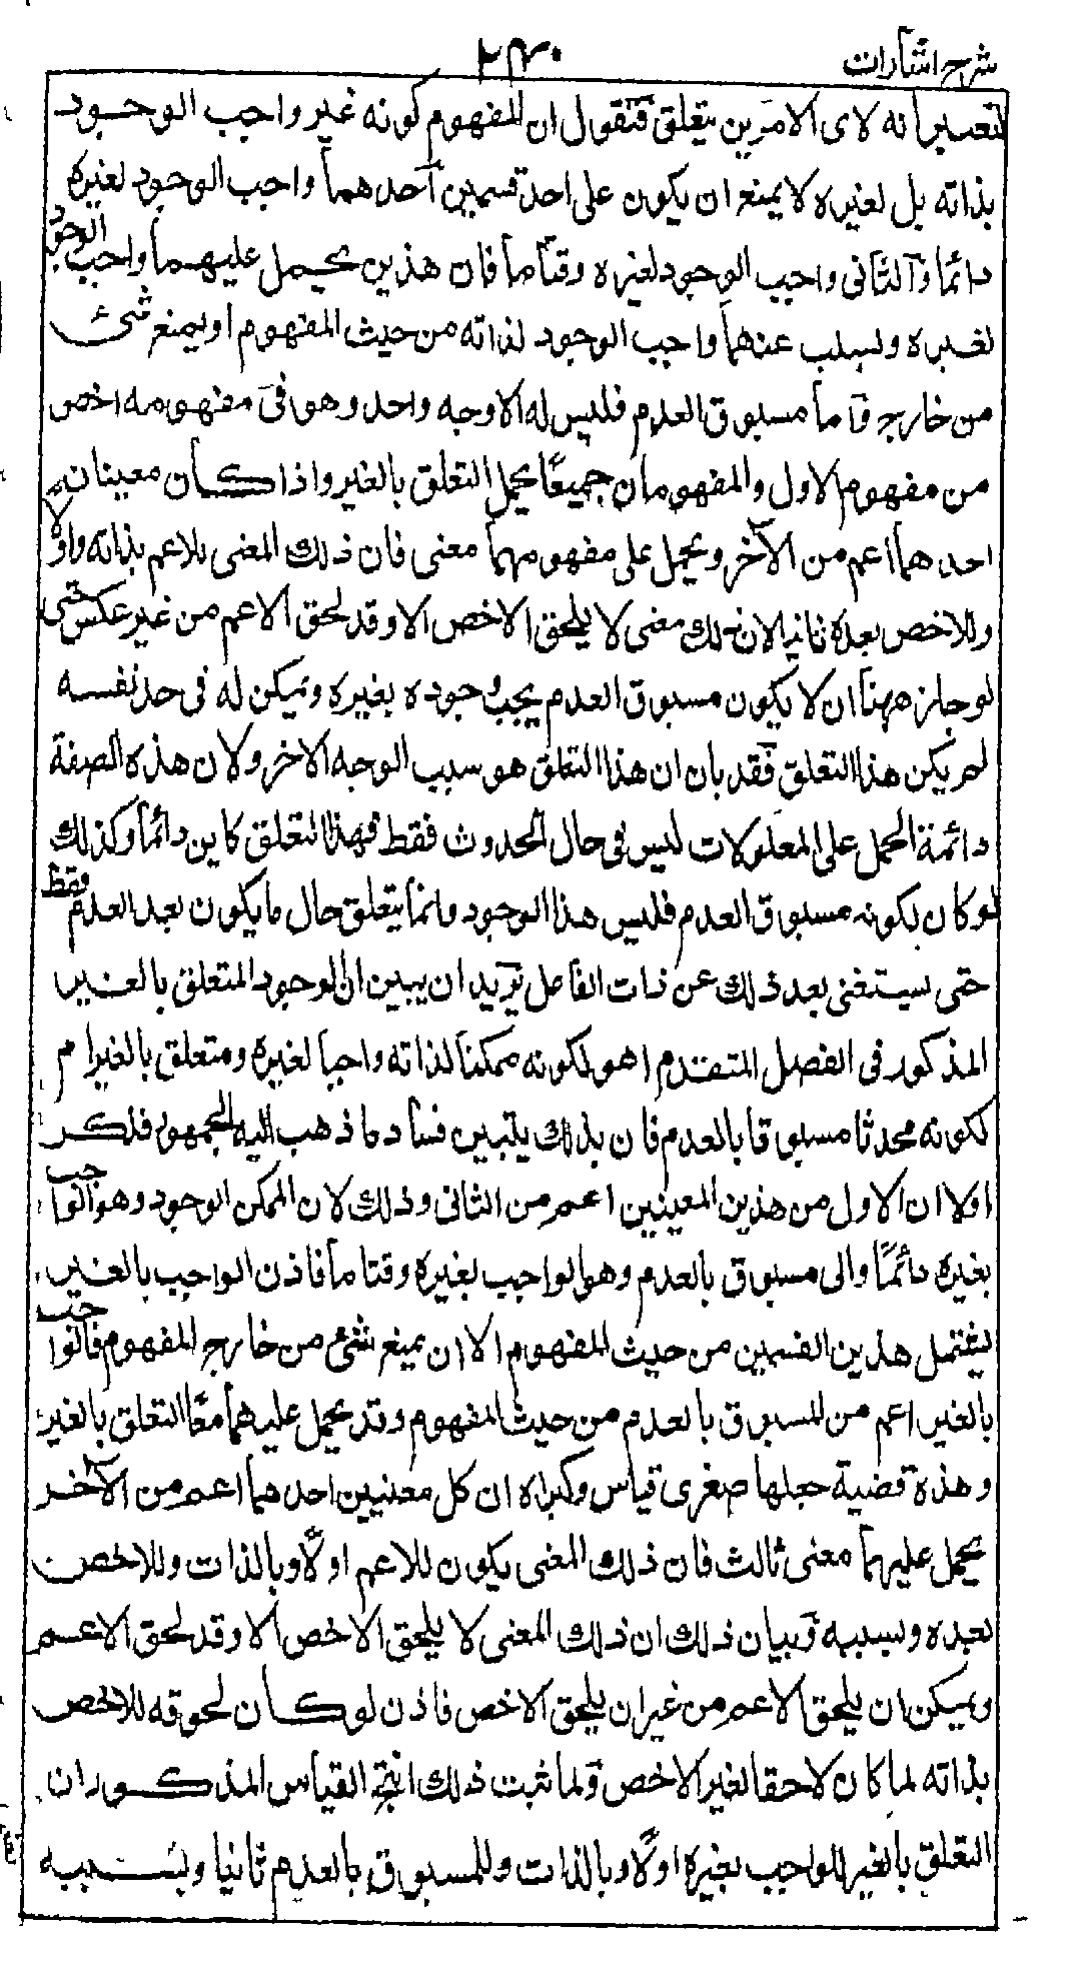 شرح اشارات
۲۳۰
لتعبير انه لاى الامرين يتعلق فنقول ان المفهوم كونه غير واجب الوجود
بذاته بل لغيره لا يمنع ان يكون على احد قسمين احدهما واجب الوجود لغيره
دائما والثانى واجب الوجود لغيره وقتا ما فان هذين يحمل عليهما واجب الوجود
لغيره ويسلب عنهما واجب الوجود لذاته من حيث المفهوم او يمنع شئ
من خارج واما مسبوق العدم فليس له الا وجه واحد وهو فى مفهومه اخص
من مفهوم الاول والمفهومان جميعًا يحمل التعلق بالغير واذا كان معنيان
احدهما اعم من الآخر ويحمل على مفهوميهما معنى فان ذلك المعنى للاعم بذاته واولًا
وللاخص بعده ثانيا لان ذلك معنى لا يلحق الاخص الا وقد لحق الاعم من غير عكس حتى
لو جاز ههنا ان لا يكون مسبوق العدم يجب وجوده بغيره ويمكن له فى حد نفسه
لم يكن هذا التعلق فقد بان ان هذا التعلق هو سبب الوجه الاخر ولان هذه الصفة
دائمة الحمل على المعلولات ليس فى حال الحدوث فقط فهذا التعلق كاين دائما وكذلك
لو كان لكونه مسبوق العدم فليس هذا الوجود وانما يتعلق حال ما يكون بعد العدم فقط
حتى يستغنى بعد ذلك عن ذات الفاعل يريد ان يبين ان الوجود المتعلق بالغير
المذكور فى الفصل المتقدم اهو لكونه ممكنا لذاته واجبا لغيره ومتعلق بالغير ام
لكونه محدثا مسبوقا بالعدم فان بذلك يتبين فساد ما ذهب اليه الجمهور فذكر
اولا ان الاول من هذين المعنيين اعم من الثانى وذلك لان الممكن الوجود وهو الواجب
بغيره دائمًا والى مسبوق بالعدم وهو الواجب لغيره وقتا ما فاذن الواجب بالغير
يشتمل هذين القسمين من حيث المفهوم الا ان يمنع شئ من خارج المفهوم فالواجب
بالغير اعم من المسبوق بالعدم من حيث المفهوم وقد يحمل عليهما معًا التعلق بالغير
وهذه قضية جعلها صغرى قياس وكبراه ان كل معنيين احدهما اعم من الآخر
يحمل عليهما معنى ثالث فان ذلك المعنى يكون للاعم اولًا وبالذات وللاخص
بعده وبسببه وبيان ذلك ان ذلك المعنى لا يلحق الاخص الا وقد لحق الاعم
ويمكن ان يلحق الاعم من غير ان يلحق الاخص فاذن لو كان لحوقه للاخص
بذاته لما كان لاحقا لغير الاخص ولما ثبت ذلك انتج القياس المذكور ان
التعلق بالغير للواجب بغيره اولًا وبالذات وللمسبوق بالعدم ثانيا وبسببه